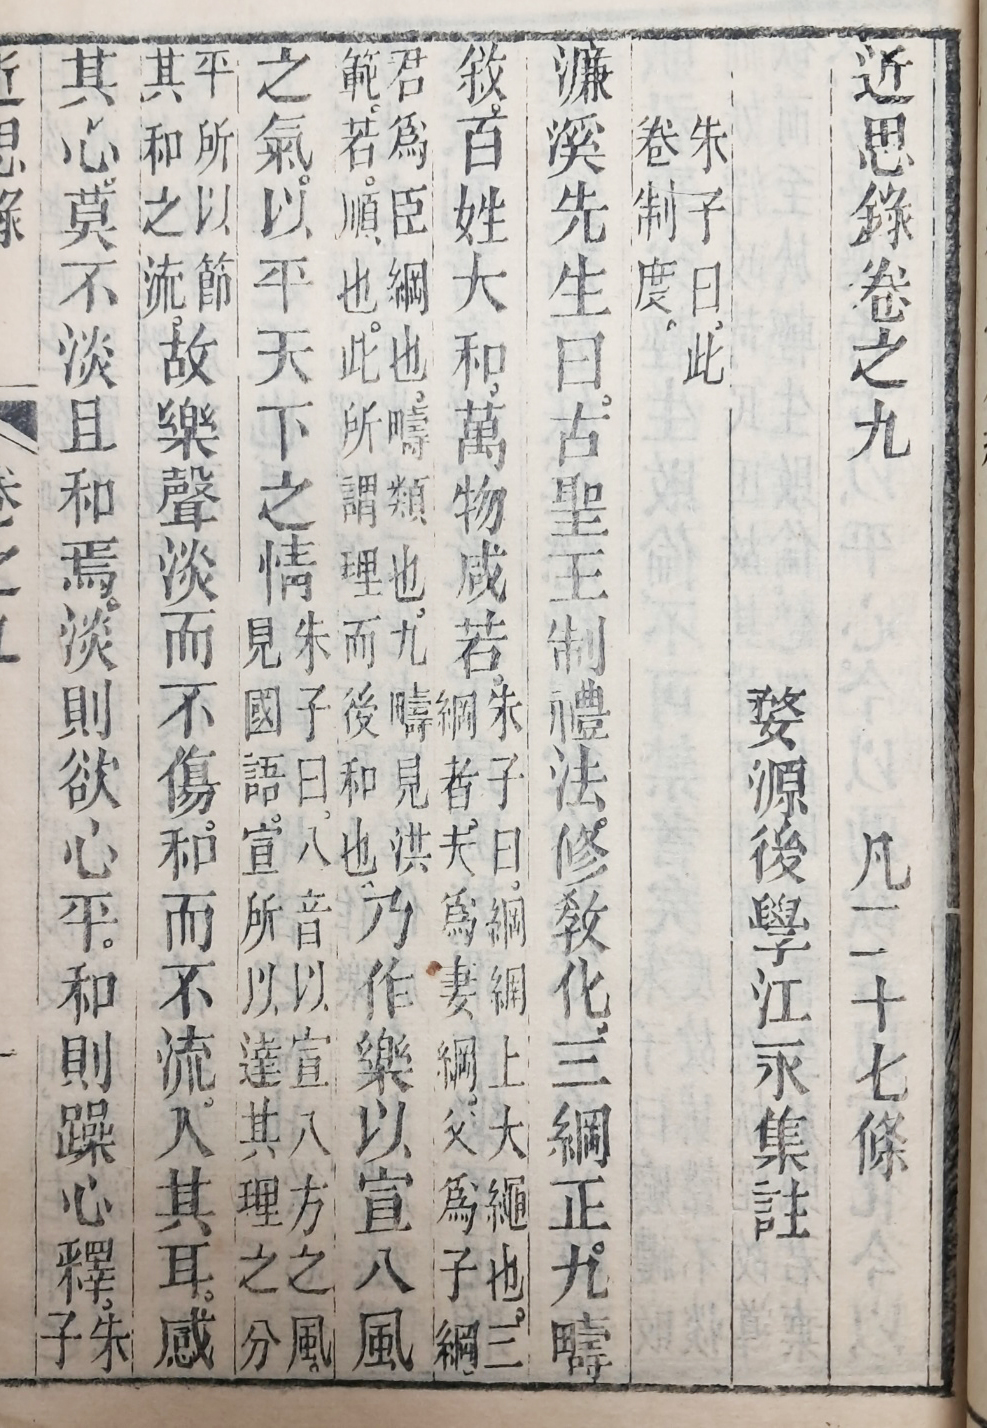 近思錄卷之九　凡二十七條
婺源後學江永集註
朱子曰此
卷制度
濂溪先生曰古聖王制禮法修敎化三綱正九疇
敘百姓大和萬物咸若
朱子曰綱網上大繩也三
綱者夫爲妻綱父爲子綱
君爲臣綱也疇類也九疇見洪
範若順也此所謂理而後和也
乃作樂以宣八風
之氣以平天下之情
朱子曰八音以宣八方之風
見國語宣所以達其理之分
平所以節
其和之流
故樂聲淡而不傷和而不流入其耳感
其心莫不淡且和焉淡則欲心平和則躁心釋
朱
子
近思錄
卷之九
一